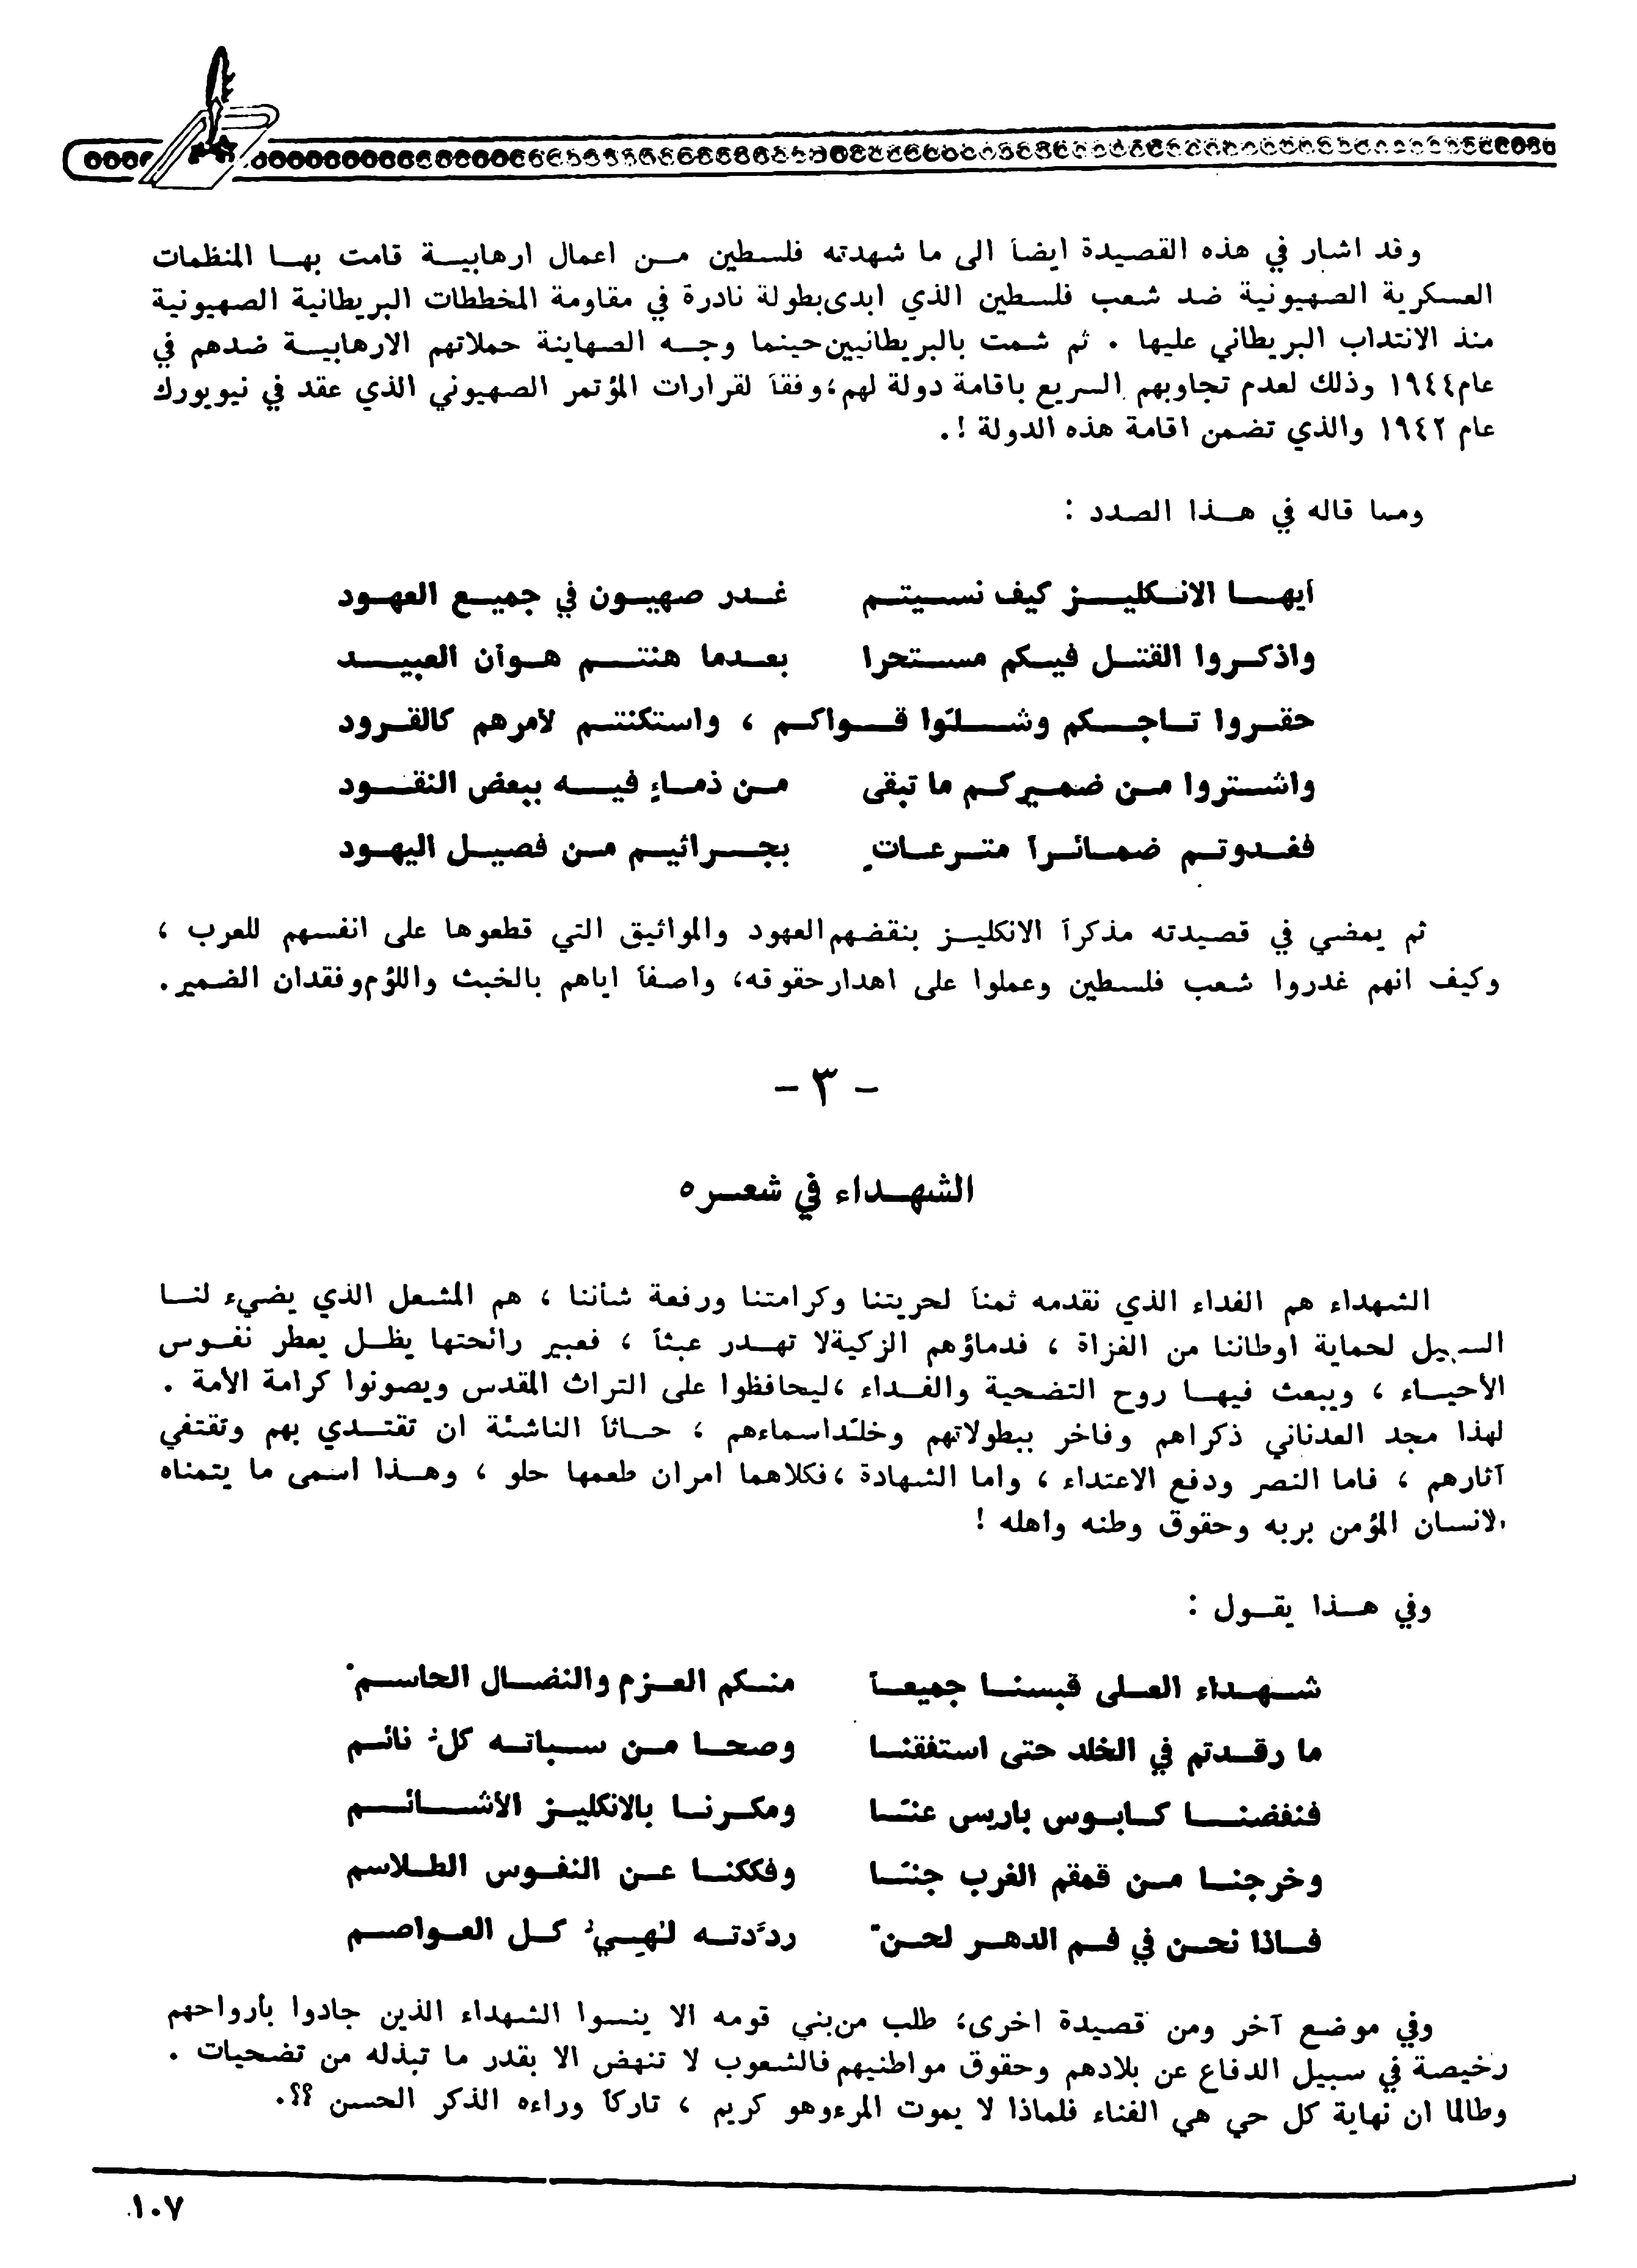 وقد اشار في هذه القصيدة ايضاً الى ما شهدته فلسطين من اعمال ارهابية قامت بها المنظمات
العسكرية الصهيونية ضد شعب فلسطين الذي ابدى بطولة نادرة في مقاومة المخططات البريطانية الصهيونية
منذ الانتداب البريطاني عليها . ثم شمت بالبريطانيين حينما وجه الصهاينة حملاتهم الارهابية ضدهم في
عام ١٩٤٤ وذلك لعدم تجاوبهم السريع باقامة دولة لهم، وفقاً لقرارات المؤتمر الصهيوني الذي عقد في نيويورك
عام ١٩٤٢ والذي تضمن اقامة هذه الدولة !.
ومما قاله في هذا الصدد :
أيها الانكليز كيف نسيتم غدر صهيون في جميع العهود
واذكروا القتل فيكم مستحرا بعدما هنتم هوان العبيد
حقروا تاجكم وشلّوا قواكم ، واستكنتم لأمرهم كالقرود
واشتروا من ضميركم ما تبقى من ذماءٍ فيه ببعض النقود
فغدوتم ضمائراً مترعاتٍ بجراثيم من فصيل اليهود
ثم يمضي في قصيدته مذكراً الانكليز بنقضهم العهود والمواثيق التي قطعوها على انفسهم للعرب ،
وكيف انهم غدروا شعب فلسطين وعملوا على اهدار حقوقه، واصفاً اياهم بالخبث واللؤم وفقدان الضمير.
- ٣ -
الشهداء في شعره
الشهداء هم الفداء الذي نقدمه ثمناً لحريتنا وكرامتنا ورفعة شأننا ، هم المشعل الذي يضيء لنا
السبيل لحماية اوطاننا من الغزاة ، فدماؤهم الزكية لا تهدر عبثاً ، فعبير رائحتها يظل يعطر نفوس
الأحياء ، ويبعث فيها روح التضحية والفداء ، ليحافظوا على التراث المقدس ويصونوا كرامة الأمة .
لهذا مجد العدناني ذكراهم وفاخر ببطولاتهم وخلّد اسماءهم ، حاثاً الناشئة ان تقتدي بهم وتقتفي
آثارهم ، فاما النصر ودفع الاعتداء ، واما الشهادة ، فكلاهما امران طعمها حلو ، وهذا اسمى ما يتمناه
الانسان المؤمن بربه وحقوق وطنه واهله !
وفي هذا يقول :
شهداء العلى قبسنا جميعاً منكم العزم والنضال الحاسمْ
ما رقدتم في الخلد حتى استفقنا وصحا من سباته كلّ نائم
فنفضنا كابوس باريس عنّا ومكرنا بالانكليز الأشائم
وخرجنا من قمقم الغرب جنّا وفككنا عن النفوس الطلاسم
فاذا نحن في فم الدهر لحنٌ ردّدته لهيّ كل العواصم
وفي موضع آخر ومن قصيدة اخرى، طلب من بني قومه الا ينسوا الشهداء الذين جادوا بأرواحهم
رخيصة في سبيل الدفاع عن بلادهم وحقوق مواطنيهم فالشعوب لا تنهض الا بقدر ما تبذله من تضحيات .
وطالما ان نهاية كل حي هي الفناء فلماذا لا يموت المرء وهو كريم ، تاركاً وراءه الذكر الحسن ؟؟.
١٠٧